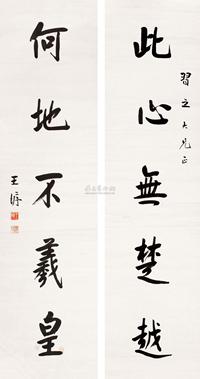 此心無楚越
習之大兄正
何地不羲皇